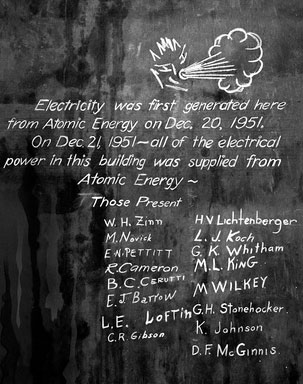 Electricity was first generated here
from Atomic Energy on Dec. 20, 1951.
On Dec. 21, 1951~all of the electrical
power in this building was supplied from
Atomic Energy ~
Those Present
W. H. Zinn
M. Novick
E. N. PETTITT
R. Cameron
B. C. CERUTTI
E. J. Barrow
L. E. LOFTIN
C. R. Gibson
H V Lichtenberger
L. J. Koch
G. K. Whitham
M. L. KING
M WILKEY
G. H. Stonehocker
K. Johnson
D. F. McGINNIS